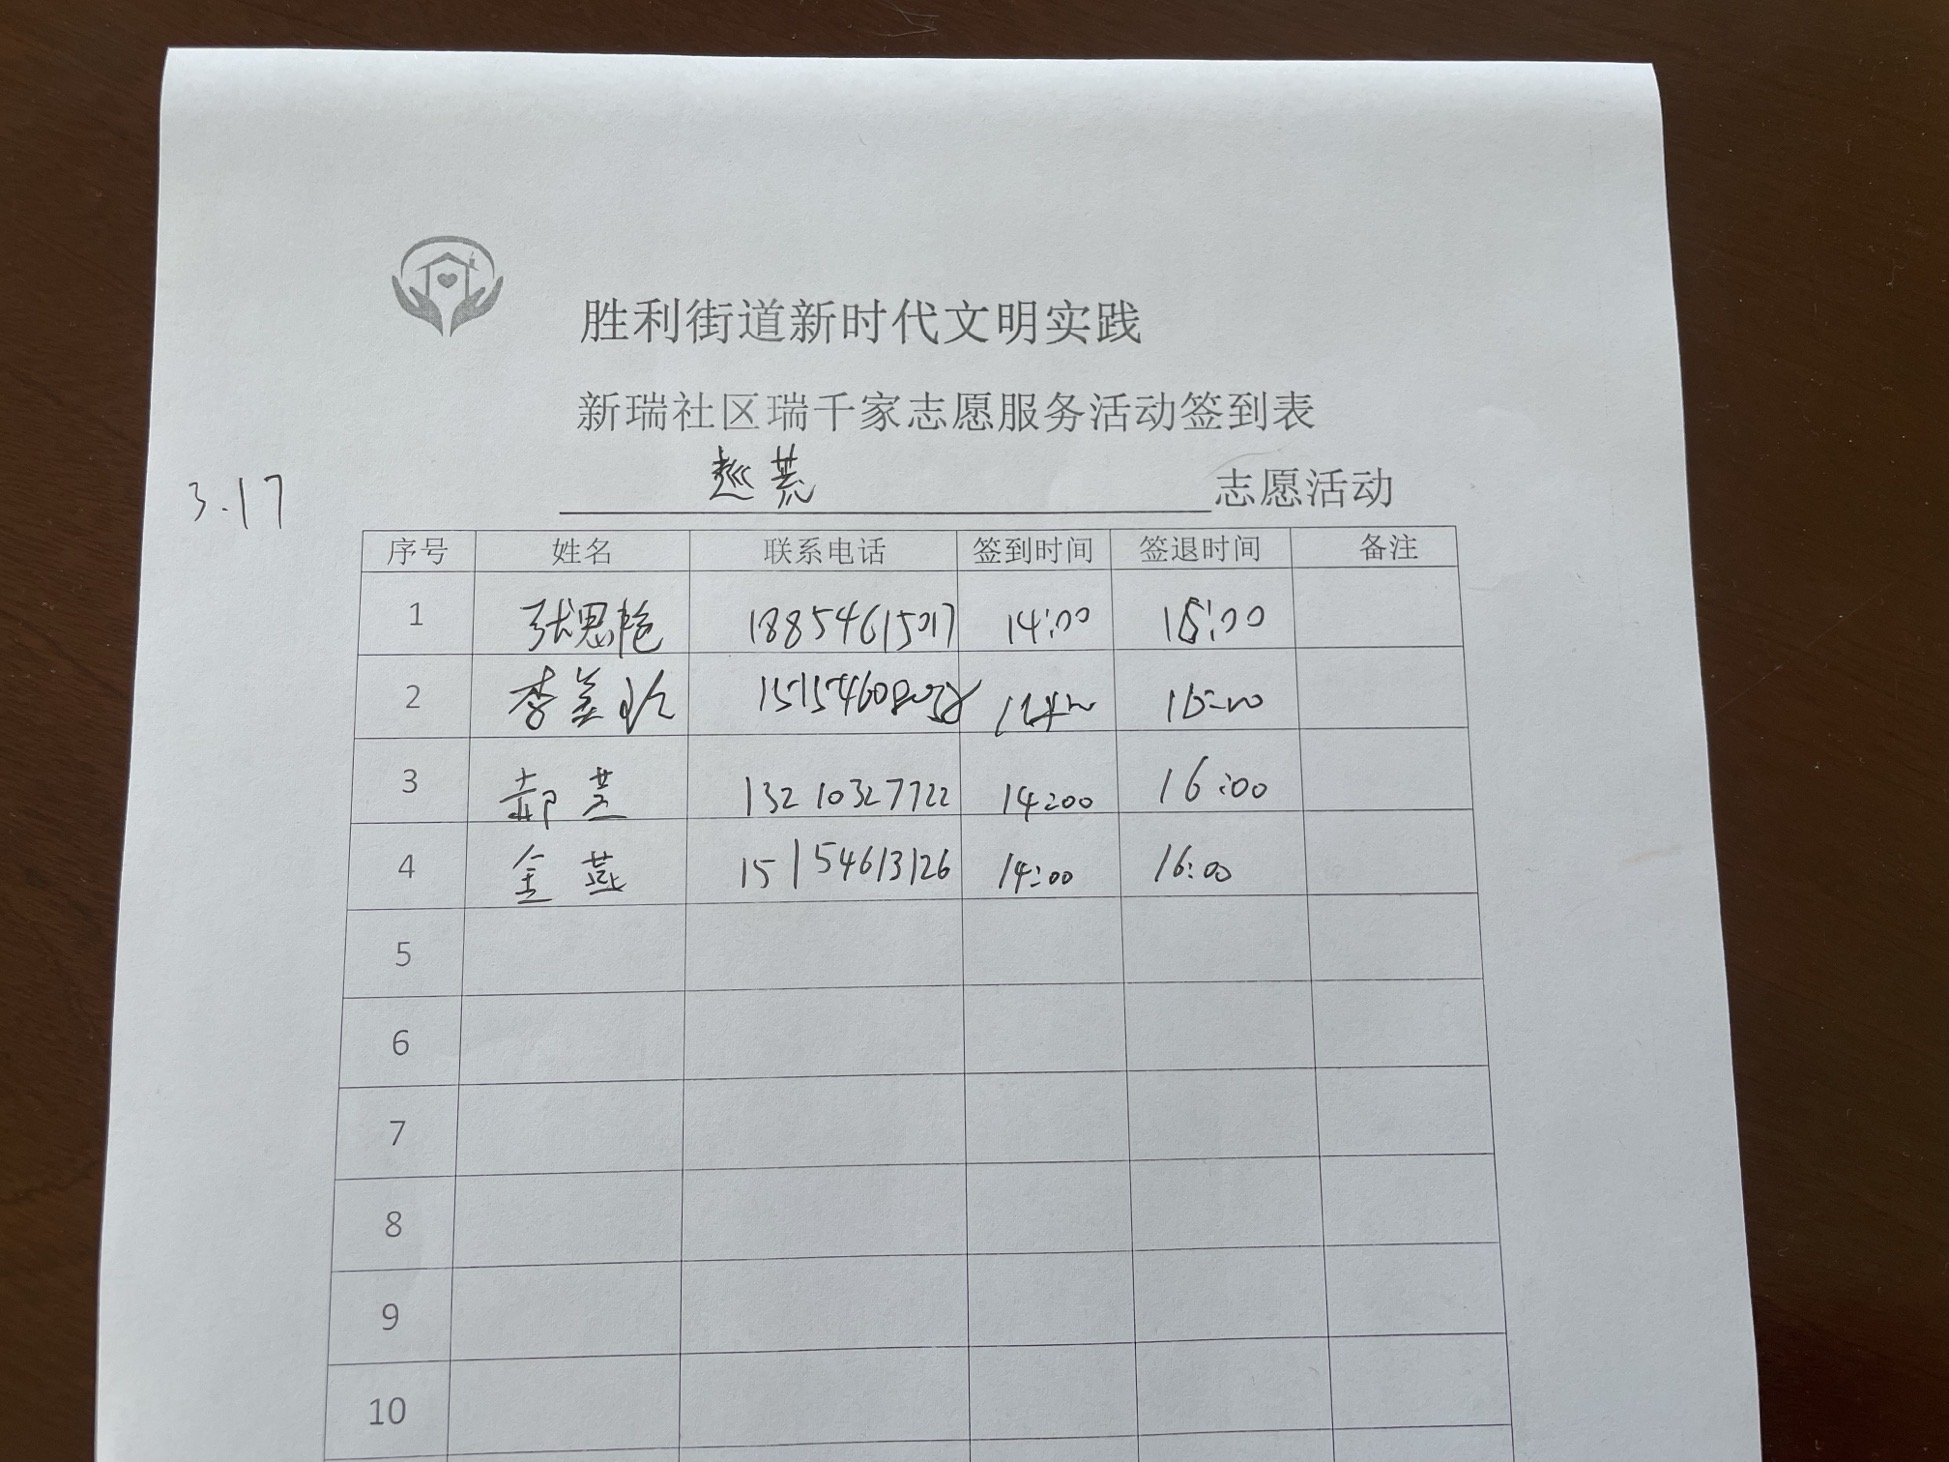 胜利街道新时代文明实践
新瑞社区瑞千家志愿服务活动签到表
志愿活动
3.17
序号 姓名 联系电话 签到时间 签退时间 备注
1 张思艳 18854615017 14:00 16:00
2 李美玲
3 郝芸 13210327722 14:00 16:00
4 金燕 15154613126 14:00 16:00
5
6
7
8
9
10